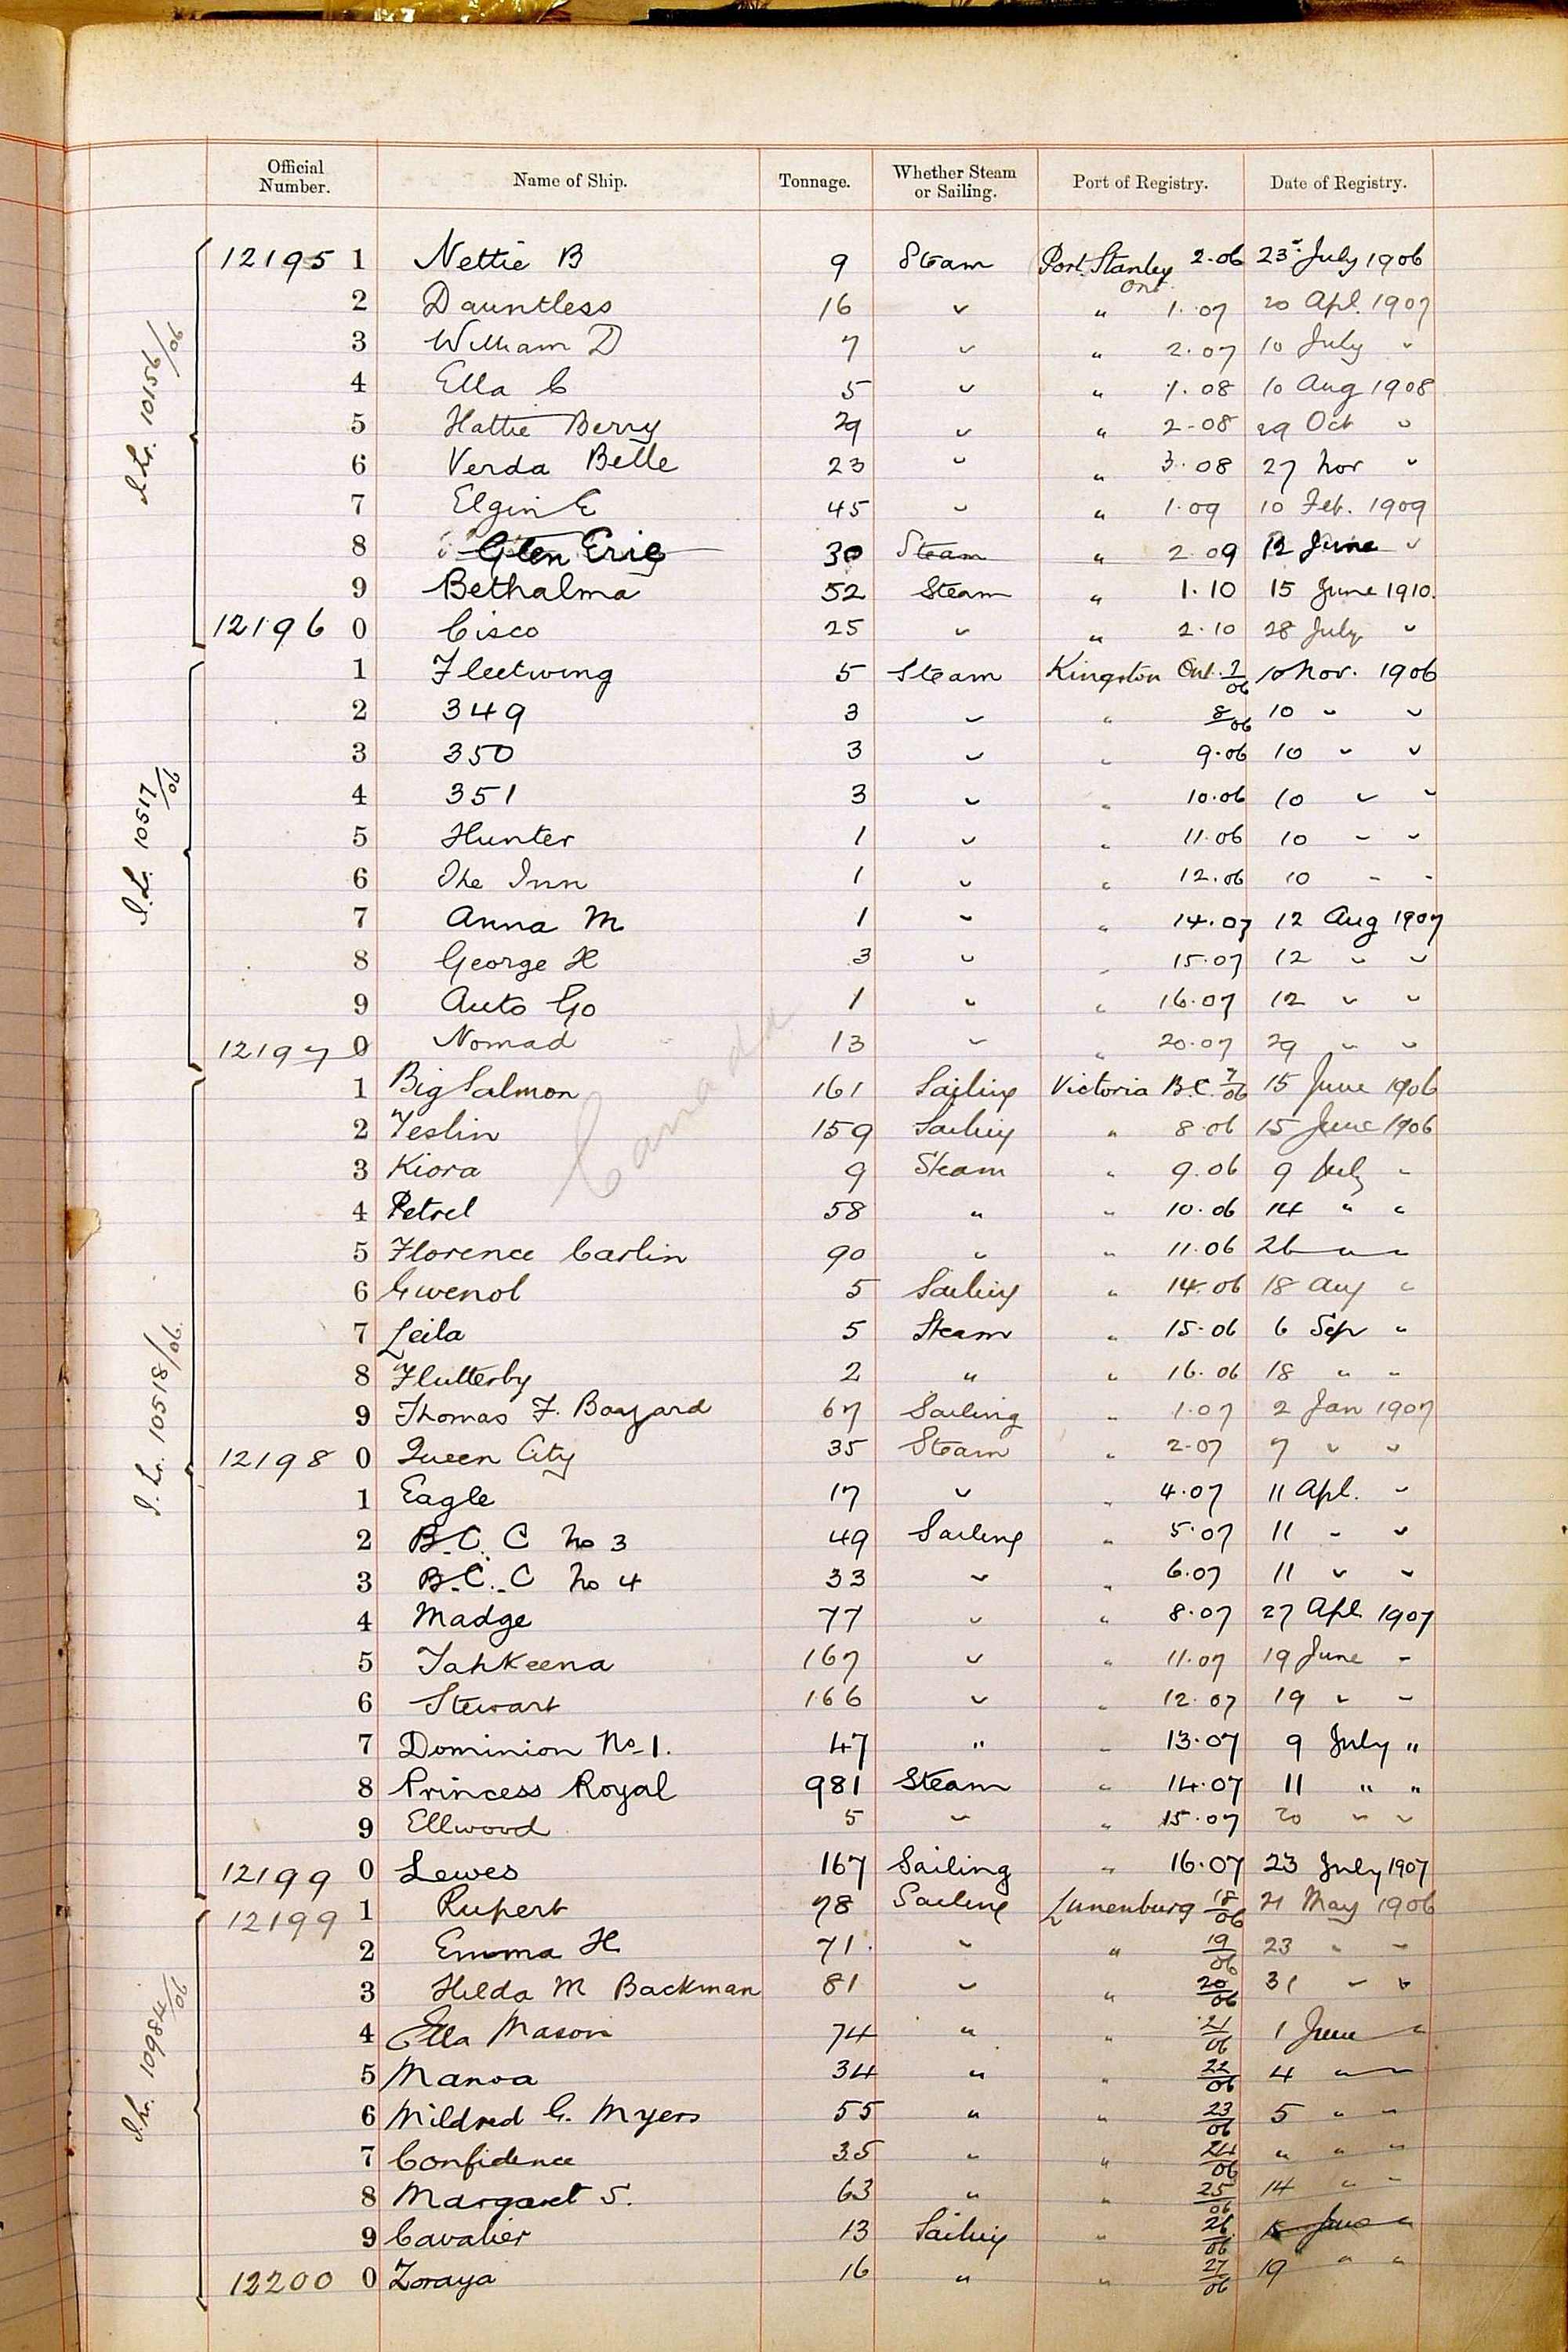 Official Number. Name of Ship. Tonnage. Whether Steam or Sailing. Port of Registry. Date of Registry.
12195 1 Nettie B 9 Steam Port Stanley Ont. 2.06 23 July 1906
2 Dauntless 16 " " 1.07 20 Apl. 1907
3 William D 7 " " 2.07 10 July "
4 Ella C 5 " " 1.08 10 Aug 1908
5 Hattie Berry 29 " " 2-08 29 Oct "
6 Verda Belle 23 " " 3.08 27 Nov "
7 Elgin E 45 " " 1.09 10 Feb. 1909
8 Glen Eric 30 Steam " 2.09 12 June "
9 Bethalma 52 Steam " 1.10 15 June 1910.
12196 0 Cisco 25 " " 2.10 28 July "
I.Lr. 10156/06
1 Fleetwing 5 Steam Kingston Ont. 7/06 10 Nov. 1906
2 349 3 " " 8/06 10 " "
3 350 3 " " 9.06 10 " "
4 351 3 " " 10.06 10 " "
5 Hunter 1 " " 11.06 10 " "
6 The Inn 1 " " 12.06 10 " "
7 Anna M 1 " " 14.07 12 Aug 1907
8 George H 3 " " 15.07 12 " "
9 Auto Go 1 " " 16.07 12 " "
12197 0 Nomad 13 " " 20.07 29 " "
I.Lr. 10517/06
1 Big Salmon 161 Sailing Victoria B.C. 7/06 15 June 1906
2 Teslin 159 Sailing " 8.06 15 June 1906
3 Kiora 9 Steam " 9.06 9 July "
4 Petrel 58 " " 10.06 14 " "
5 Florence Carlin 90 " " 11.06 26 " "
6 Gwenol 5 Sailing " 14.06 18 Aug "
7 Leila 5 Steam " 15.06 6 Sep "
8 Flutterby 2 " " 16.06 18 " "
9 Thomas F. Bayard 67 Sailing " 1.07 2 Jan 1907
12198 0 Queen City 35 Steam " 2.07 7 " "
1 Eagle 17 " " 4.07 11 Apl. "
2 B.C.C No 3 49 Sailing " 5.07 11 " "
3 B.C.C No 4 33 " " 6.07 11 " "
4 Madge 77 " " 8.07 27 Apl 1907
5 Tahkeena 167 " " 11.07 19 June "
6 Stewart 166 " " 12.07 19 " "
7 Dominion No 1. 47 " " 13.07 9 July "
8 Princess Royal 981 Steam " 14.07 11 " "
9 Ellwood 5 " " 15.07 20 " "
12199 0 Lewes 167 Sailing " 16.07 23 July 1907
I.Lr. 10518/06.
Canada
12199 1 Rupert 78 Sailing Lunenburg 18/06 21 May 1906
2 Emma H 71. " " 19/06 23 " "
3 Hilda M Backman 81 " " 20/06 31 " "
4 Ella Mason 74 " " 21/06 1 June "
5 Manoa 34 " " 22/06 4 " "
6 Mildred G. Myers 55 " " 23/06 5 " "
7 Confidence 35 " " 24/06 " " "
8 Margaret S. 63 " " 25/06 14 " "
9 Cavalier 13 Sailing " 26/06 15 June "
12200 0 Zoraya 16 " " 27/06 19 " "
I.Lr. 10984/06